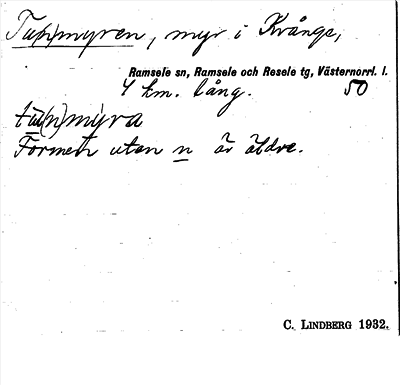 Tu(n)myren, myr i Krånge,
Ramsele sn, Ramsele och Resele tg, Västernorrl. l.
4 km. lång. 50
tu(n)myra
Formen utan n är äldre.
C. LINDBERG 1932.